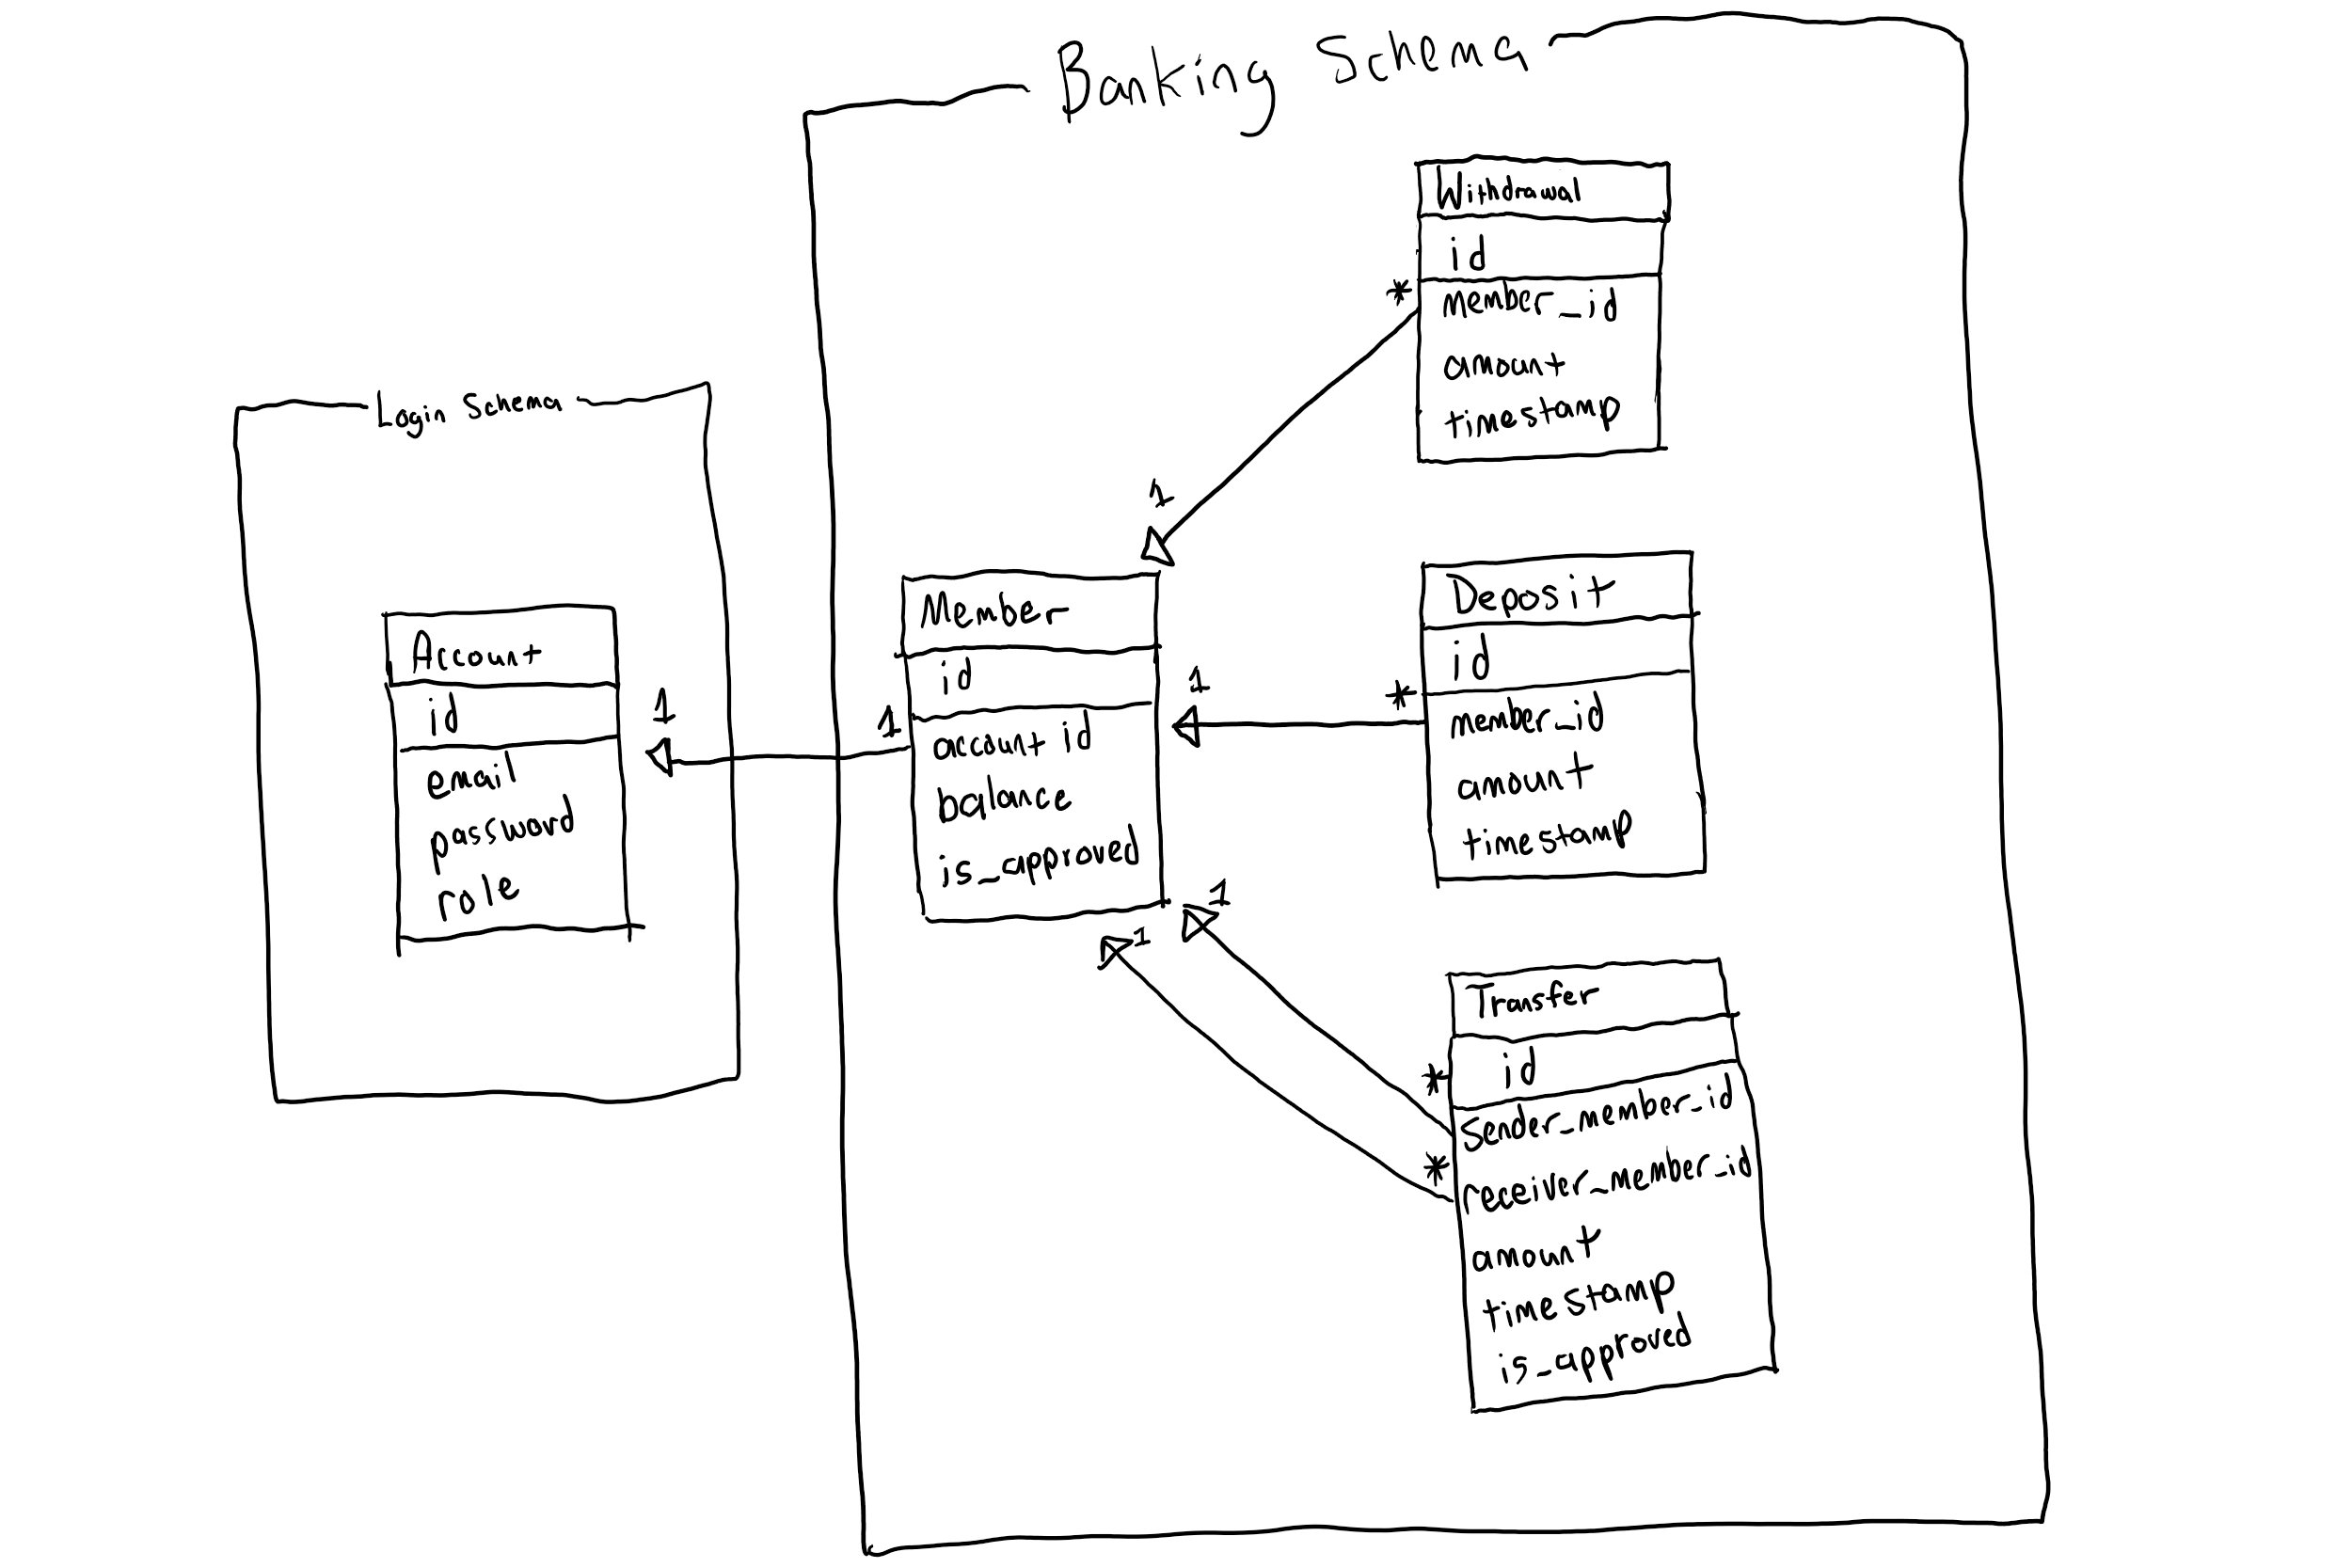 Banking Schema
Login Schema
Account
id
email
password
role
1
1
Member
id
account id
balance
is_approved
1
1
1
1
Withdrawal
id
*
member_id
amount
timestamp
Deposit
id
*
member_id
amount
timestamp
Transfer
id
*
Sender_member_id
*
receiver_member_id
amount
timestamp
is_approved